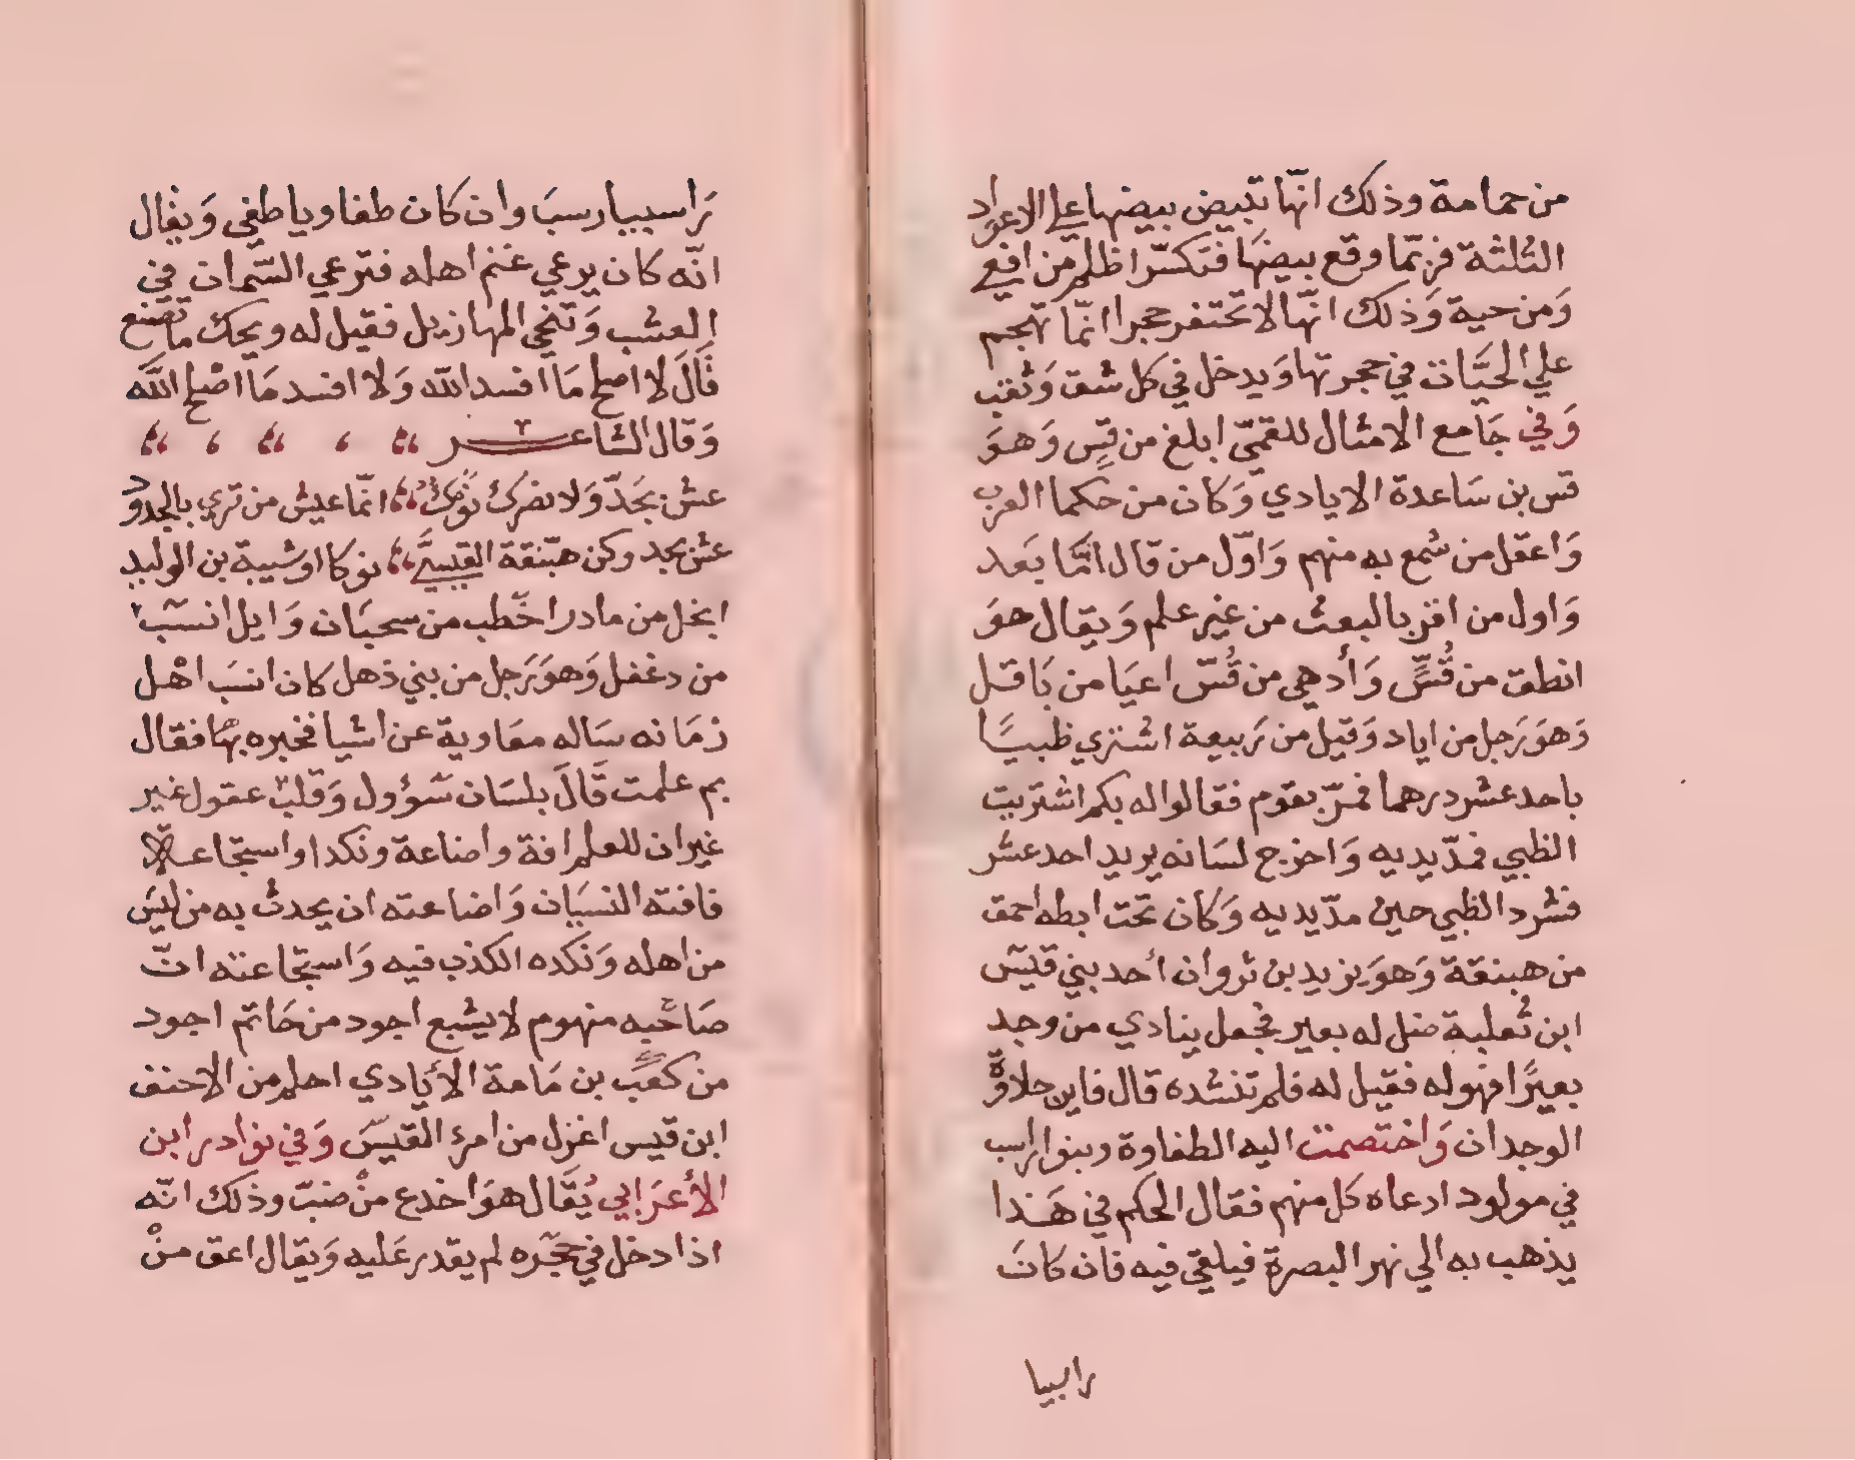 من حمامة وذلك انّها تبيض بيضها علي الاعواد
الثلثة فربّما وقع بيضها فتكسّر اظلم من افعي
وَمن حية وَذلك انّها لا تحتفر حجرا انّما تهجم
علي الحيَّات في حجرتها وَيدخل في كل شق وَثقب
وَفي جَامع الامثال للقمّيّ ابلغ من قسٍ وَهوَ
قس بن سَاعدة الايادي وَكان من حكما العرب
وَاعقل من سمع به منهم وَاوّل من قال امَّا بَعد
وَاول من اقر بالبعث من غير علم وَيقال هوَ
انطق من قُسٍّ وَأدهي من قُسّ اعيَا من بَاقل
وَهوَ رَجل من اياد وَقيل من رَبيعة اشتري ظبيًا
باحد عشر درهما فمرّ بقوم فقالوا له بكم اشتريت
الظبي فمدّ يديه وَاخرج لسَانه يريد احد عشر
فشرد الظبي حين مدّ يديه وَكان تحت ابطه احمق
من هبنقة وَهوَ يزيد بن ثروان أحد بني قيس
ابن ثُعلبة ضل له بعير فجعل ينادي من وجد
بعيرًا فهو له فقيل له فلم تنشده قال فاين حلاوة
الوجدان وَاختصمت اليه الطفاوة وبنوا راسب
في مولود ادعاه كل منهم فقال الحكم في هَذا
يذهب به الي نهر البصرة فيلقي فيه فان كانَ
راسبيا
رَاسبيا رسبَ وان كان طفاويا طفي وَيقال
انّه كان يرعي غنم اهله فترعي السّمان في
العشب وَتنحي المهازيل فقيل له ويحك ما تصنع
قَالَ لا اصلح مَا افسد الله وَلا افسد مَا اصْلح الله
وَقال الشاعر
عش بجَدّ وَلا يضرك نُوكُ انّما عيش من تري بالجدود
عش بجد وكن هبّنقة القيسيَّ نوكا او شيبة بن الوليد
ابخل من مادر اخطب من سحبَان وَايل انسَب
من دغفل وَهوَ رَجل من بني ذهل كان انسَب اهْل
زمَانه سَاله معَاوية عن اشيا فخبره بهَا فقال
بم علمت قَالَ بلسَان سَؤول وَقلبٌ عقول غير
غير ان للعلم افة واضاعة ونكدا واستجاعة
فافته النسيَان وَاضاعته ان يحدث به من ليسَ
من اهله وَنكده الكذب فيه وَاستجاعته انّ
صَاحبه منهوم لا يشبع اجود من حَاتم اجود
من كعَب بن مَامة الأيَادي احلم من الاحنف
ابن قيس اغزل من امرئ القيسَ وَفي نوادر ابن
الأعرَابي يُقَال هوَ اخدع منْ ضبّ وذلك انّه
اذا دخل في حجره لم يقدر عَليه وَيقال اعق منْ